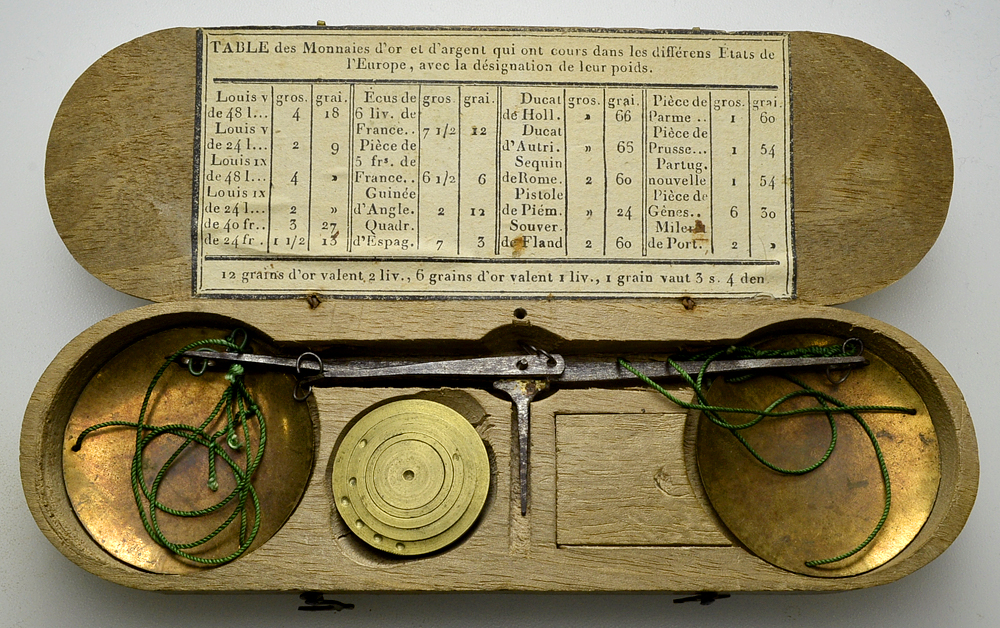 TABLE des Monnaies d'or et d'argent qui ont cours dans les différens États de
l'Europe, avec la désignation de leur poids.
Louis v gros. grai. Écus de gros. grai. Ducat gros. grai. Pièce de gros. grai.
de 48 l... 4 18 6 liv. de de Holl. » 66 Parme .. 1 60
Louis v France.. 7 1/2 12 Ducat Pièce de
de 24 l... 2 9 Pièce de d'Autri. » 65 Prusse... 1 54
Louis ix 5 frs. de Sequin Partug.
de 48 l... 4 » France.. 6 1/2 6 de Rome. 2 60 nouvelle 1 54
Louis ix Guinée Pistole Pièce de
de 24 l... 2 » d'Angle. 2 12 de Piém. » 24 Gênes.. 6 30
de 40 fr.. 3 27 Quadr. Souver. Mile
de 24 fr. 1 1/2 13 d'Espag. 7 3 de Fland 2 60 de Port.. 2 »
12 grains d'or valent 2 liv., 6 grains d'or valent 1 liv., 1 grain vaut 3 s. 4 den